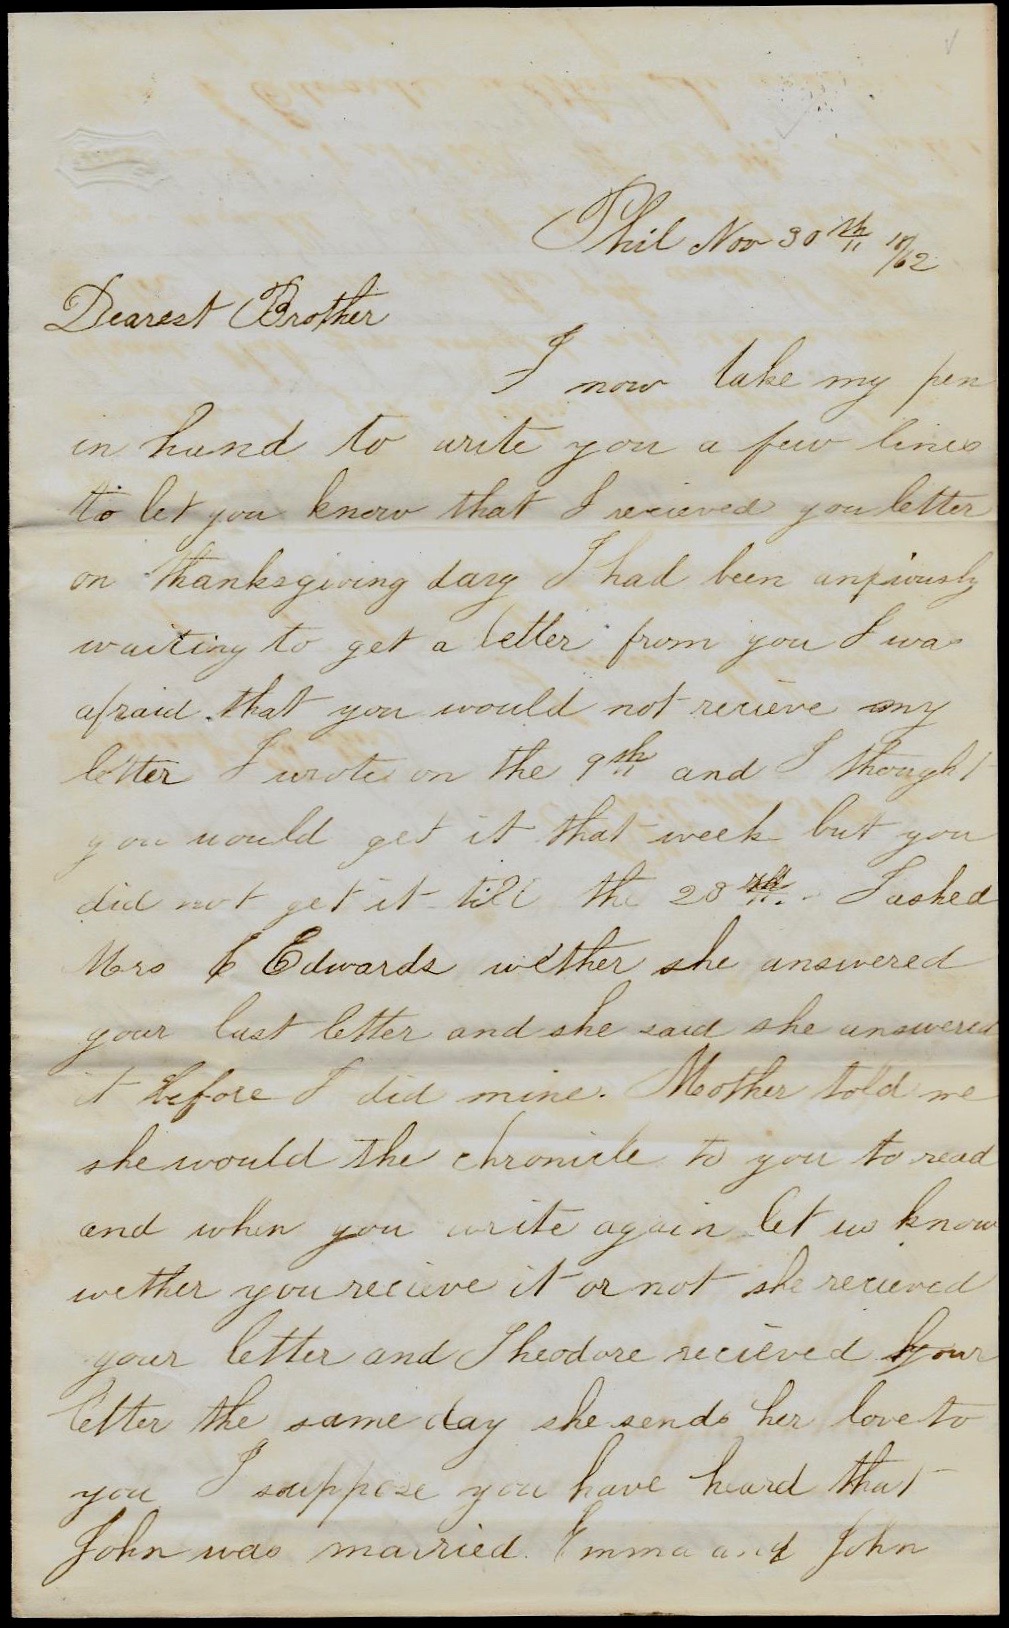 Phil Nov 30th 18/62
Dearest Brother
I now take my pen
in hand to write you a few lines
to let you know that I recieved you letter
on thanksgiving day I had been anxiously
waiting to get a letter from you I was
afraid that you would not recieve my
letter I wrote on the 9th and I thought
you would get it that week but you
did not get it till the 28th. I asked
Mrs Edwards wether she answered
your last letter and she said she answered
it before I did mine. Mother told me
she would the chronicle to you to read
and when you write again let us know
wether you recieve it or not she recieved
your letter and Theodore recieved your
letter the same day she sends her love to
you I suppose you have heard that
John was married. Emma and John